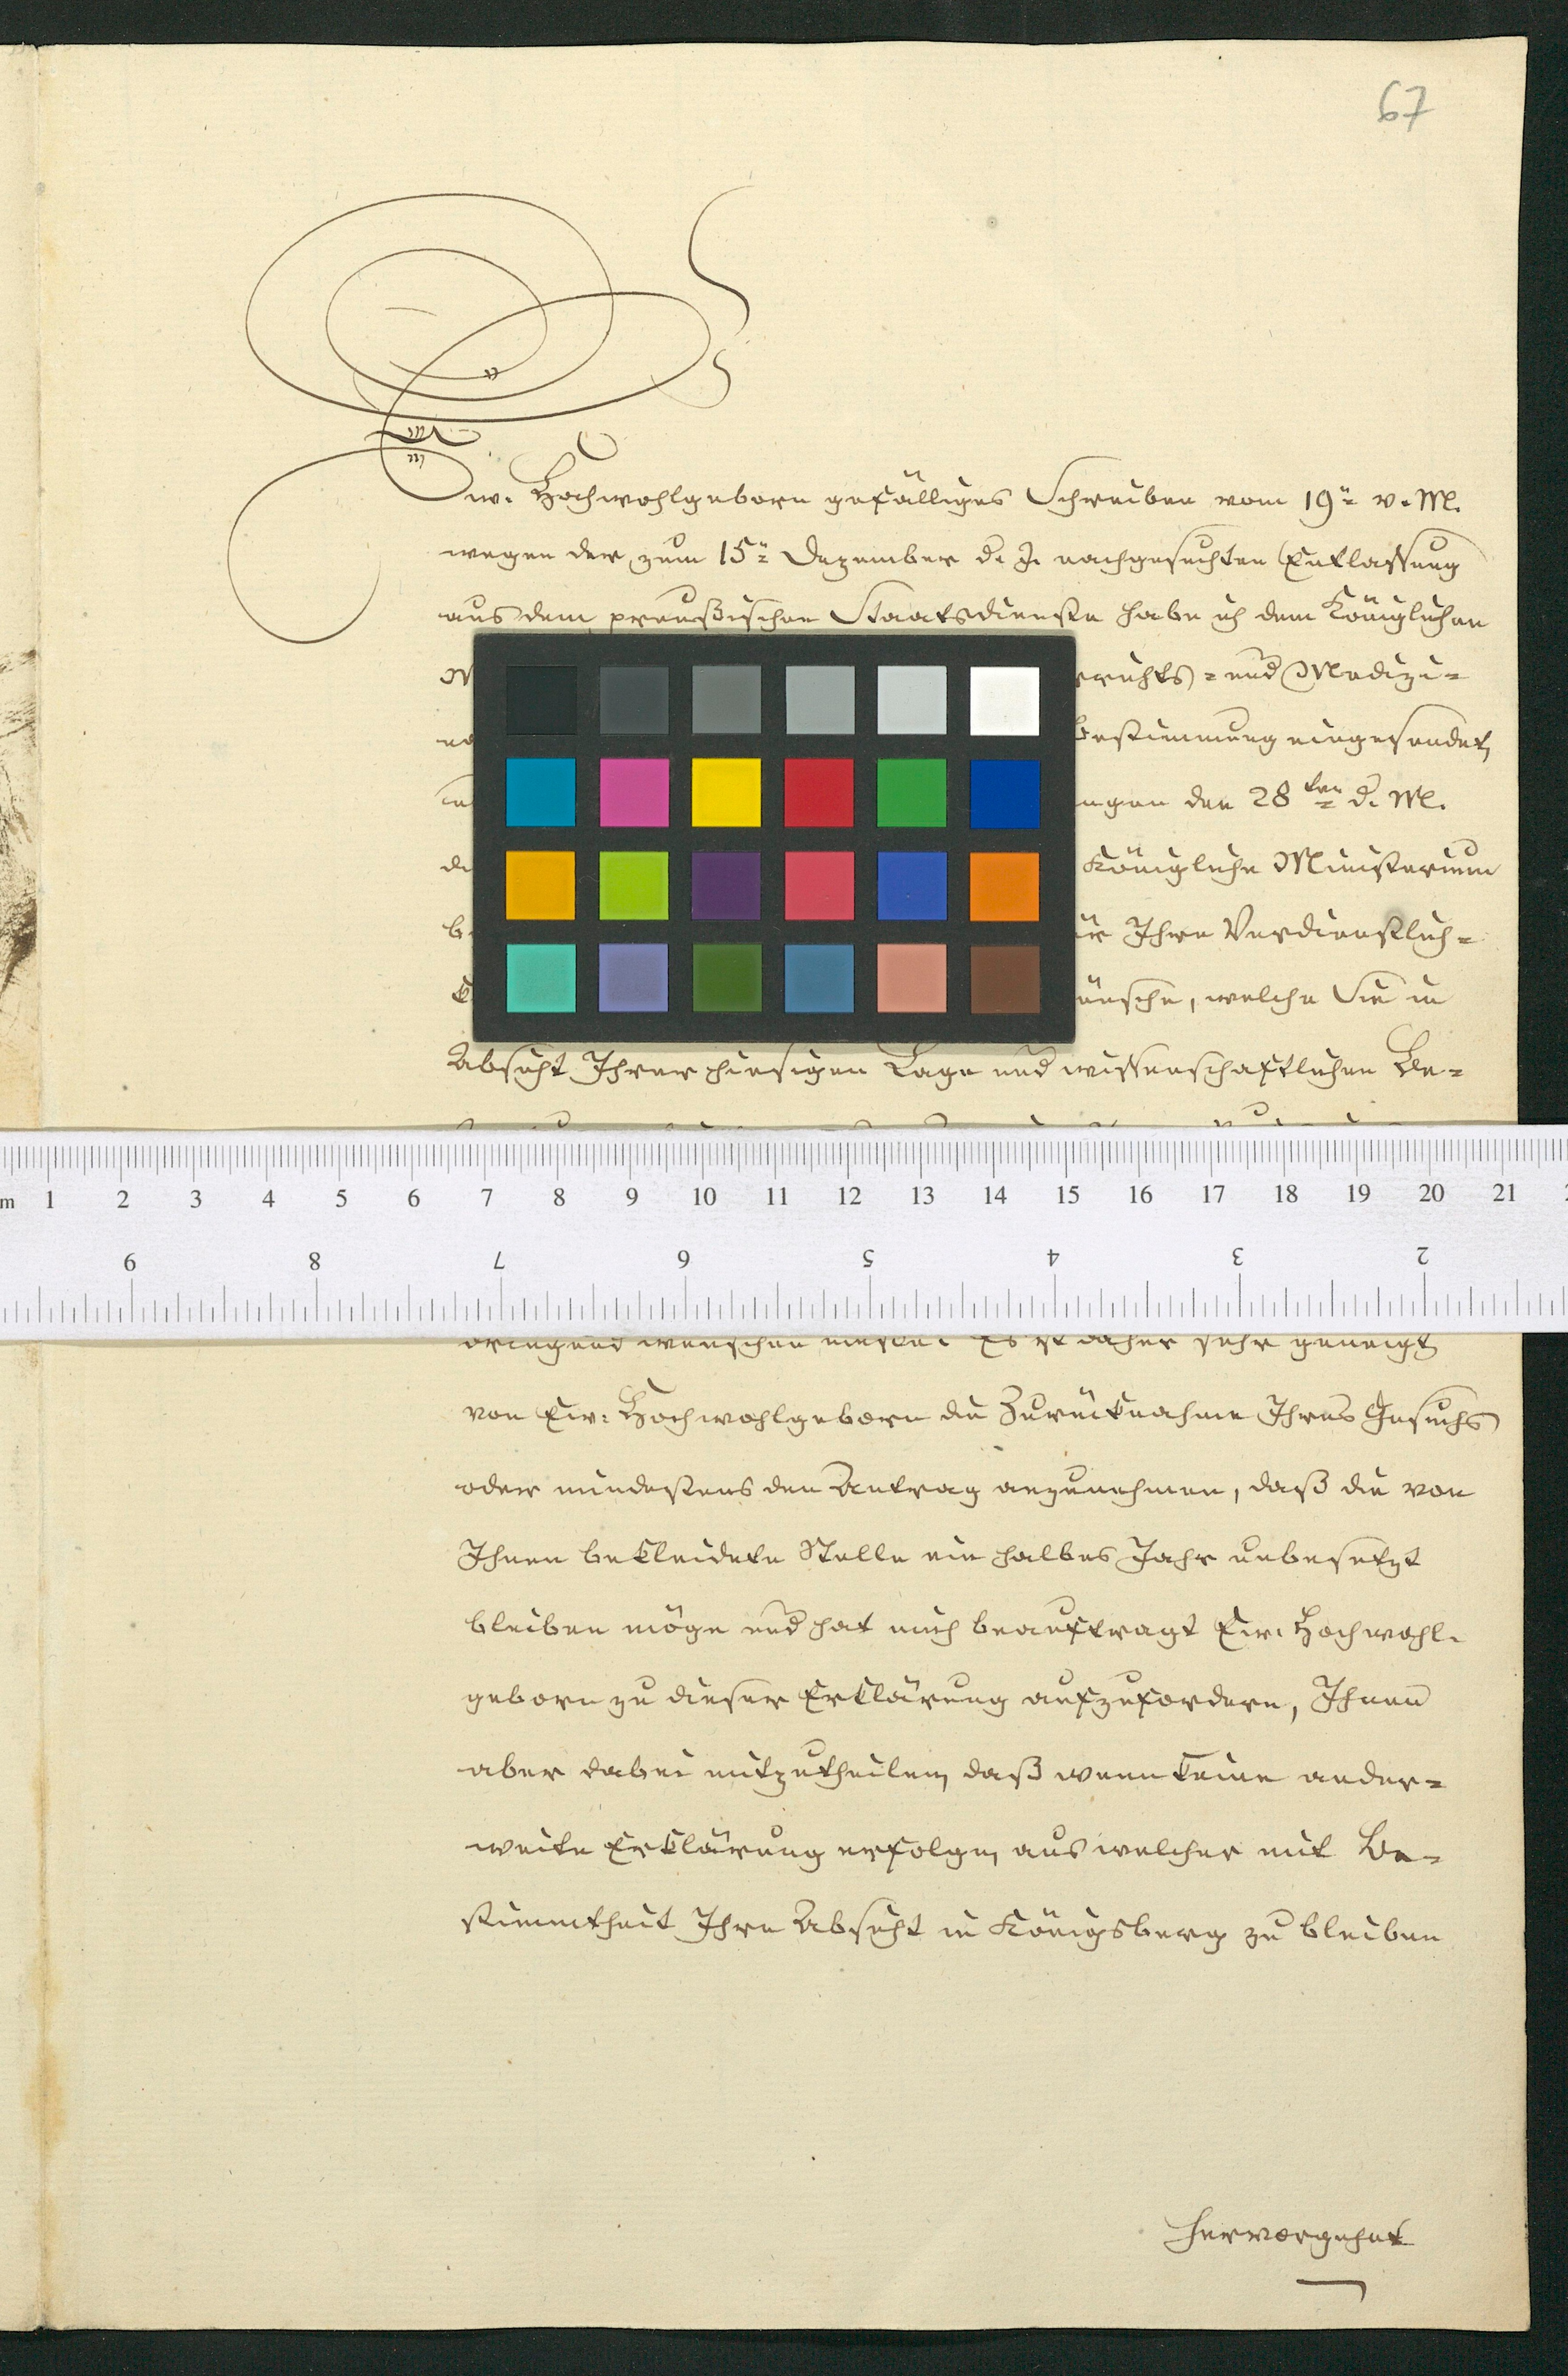 67
Ew. Hochwohlgeborn gefälliges Schreiben vom 19n v. M.
wegen der zum 15n Dezember d. J. nachgesuchten Entlassung
aus dem preußischen Staatsdienste habe ich dem Königlichen
richts- und Medizi-
Bestimmung eingesendet,
den 28ten d. M.
Königliche Ministerium
Ihre Verdienstlich-
welche Sie in
Absicht Ihrer hiesigen Lage und wissenschaftlichen Be-
m 1 2 3 4 5 6 7 8 9 10 11 12 13 14 15 16 17 18 19 20 21
9 8 7 6 5 4 3 2
dringend wünschen müsse. Es ist daher sehr geneigt
von Ew. Hochwohlgeborn die Zurücknahme Ihres Gesuchs
oder mindestens den Antrag anzunehmen, daß die von
Ihnen bekleidete Stelle ein halbes Jahr unbesetzt
bleiben möge und hat mich beauftragt Ew. Hochwohl-
geborn zu dieser Erklärung aufzufordern, Ihnen
aber dabei mitzutheilen, daß wenn keine ander-
weite Erklärung erfolge, aus welcher mit Be-
stimmtheit Ihre Absicht in Königsberg zu bleiben
hervorgehet